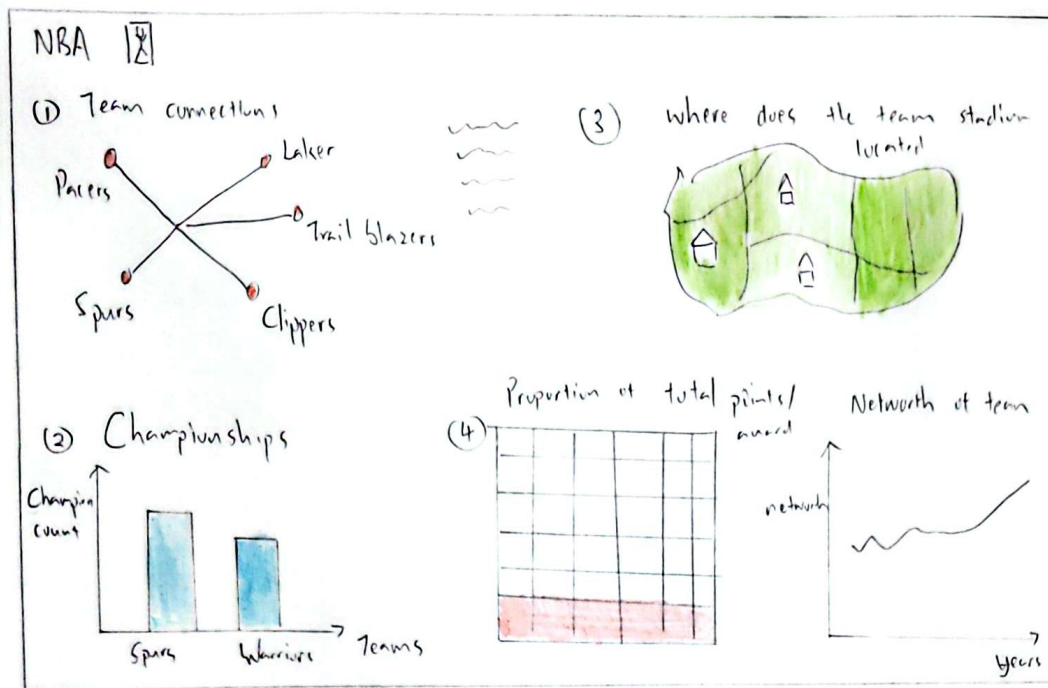 NBA
① Team connections
Pacers
Laker
Trail blazers
Spurs
Clippers
(3) where does the team stadium
located
② Championships
Champion
count
Spurs
Warriors
Teams
(4) Proportion of total points/
award
Networth of team
networth
Years